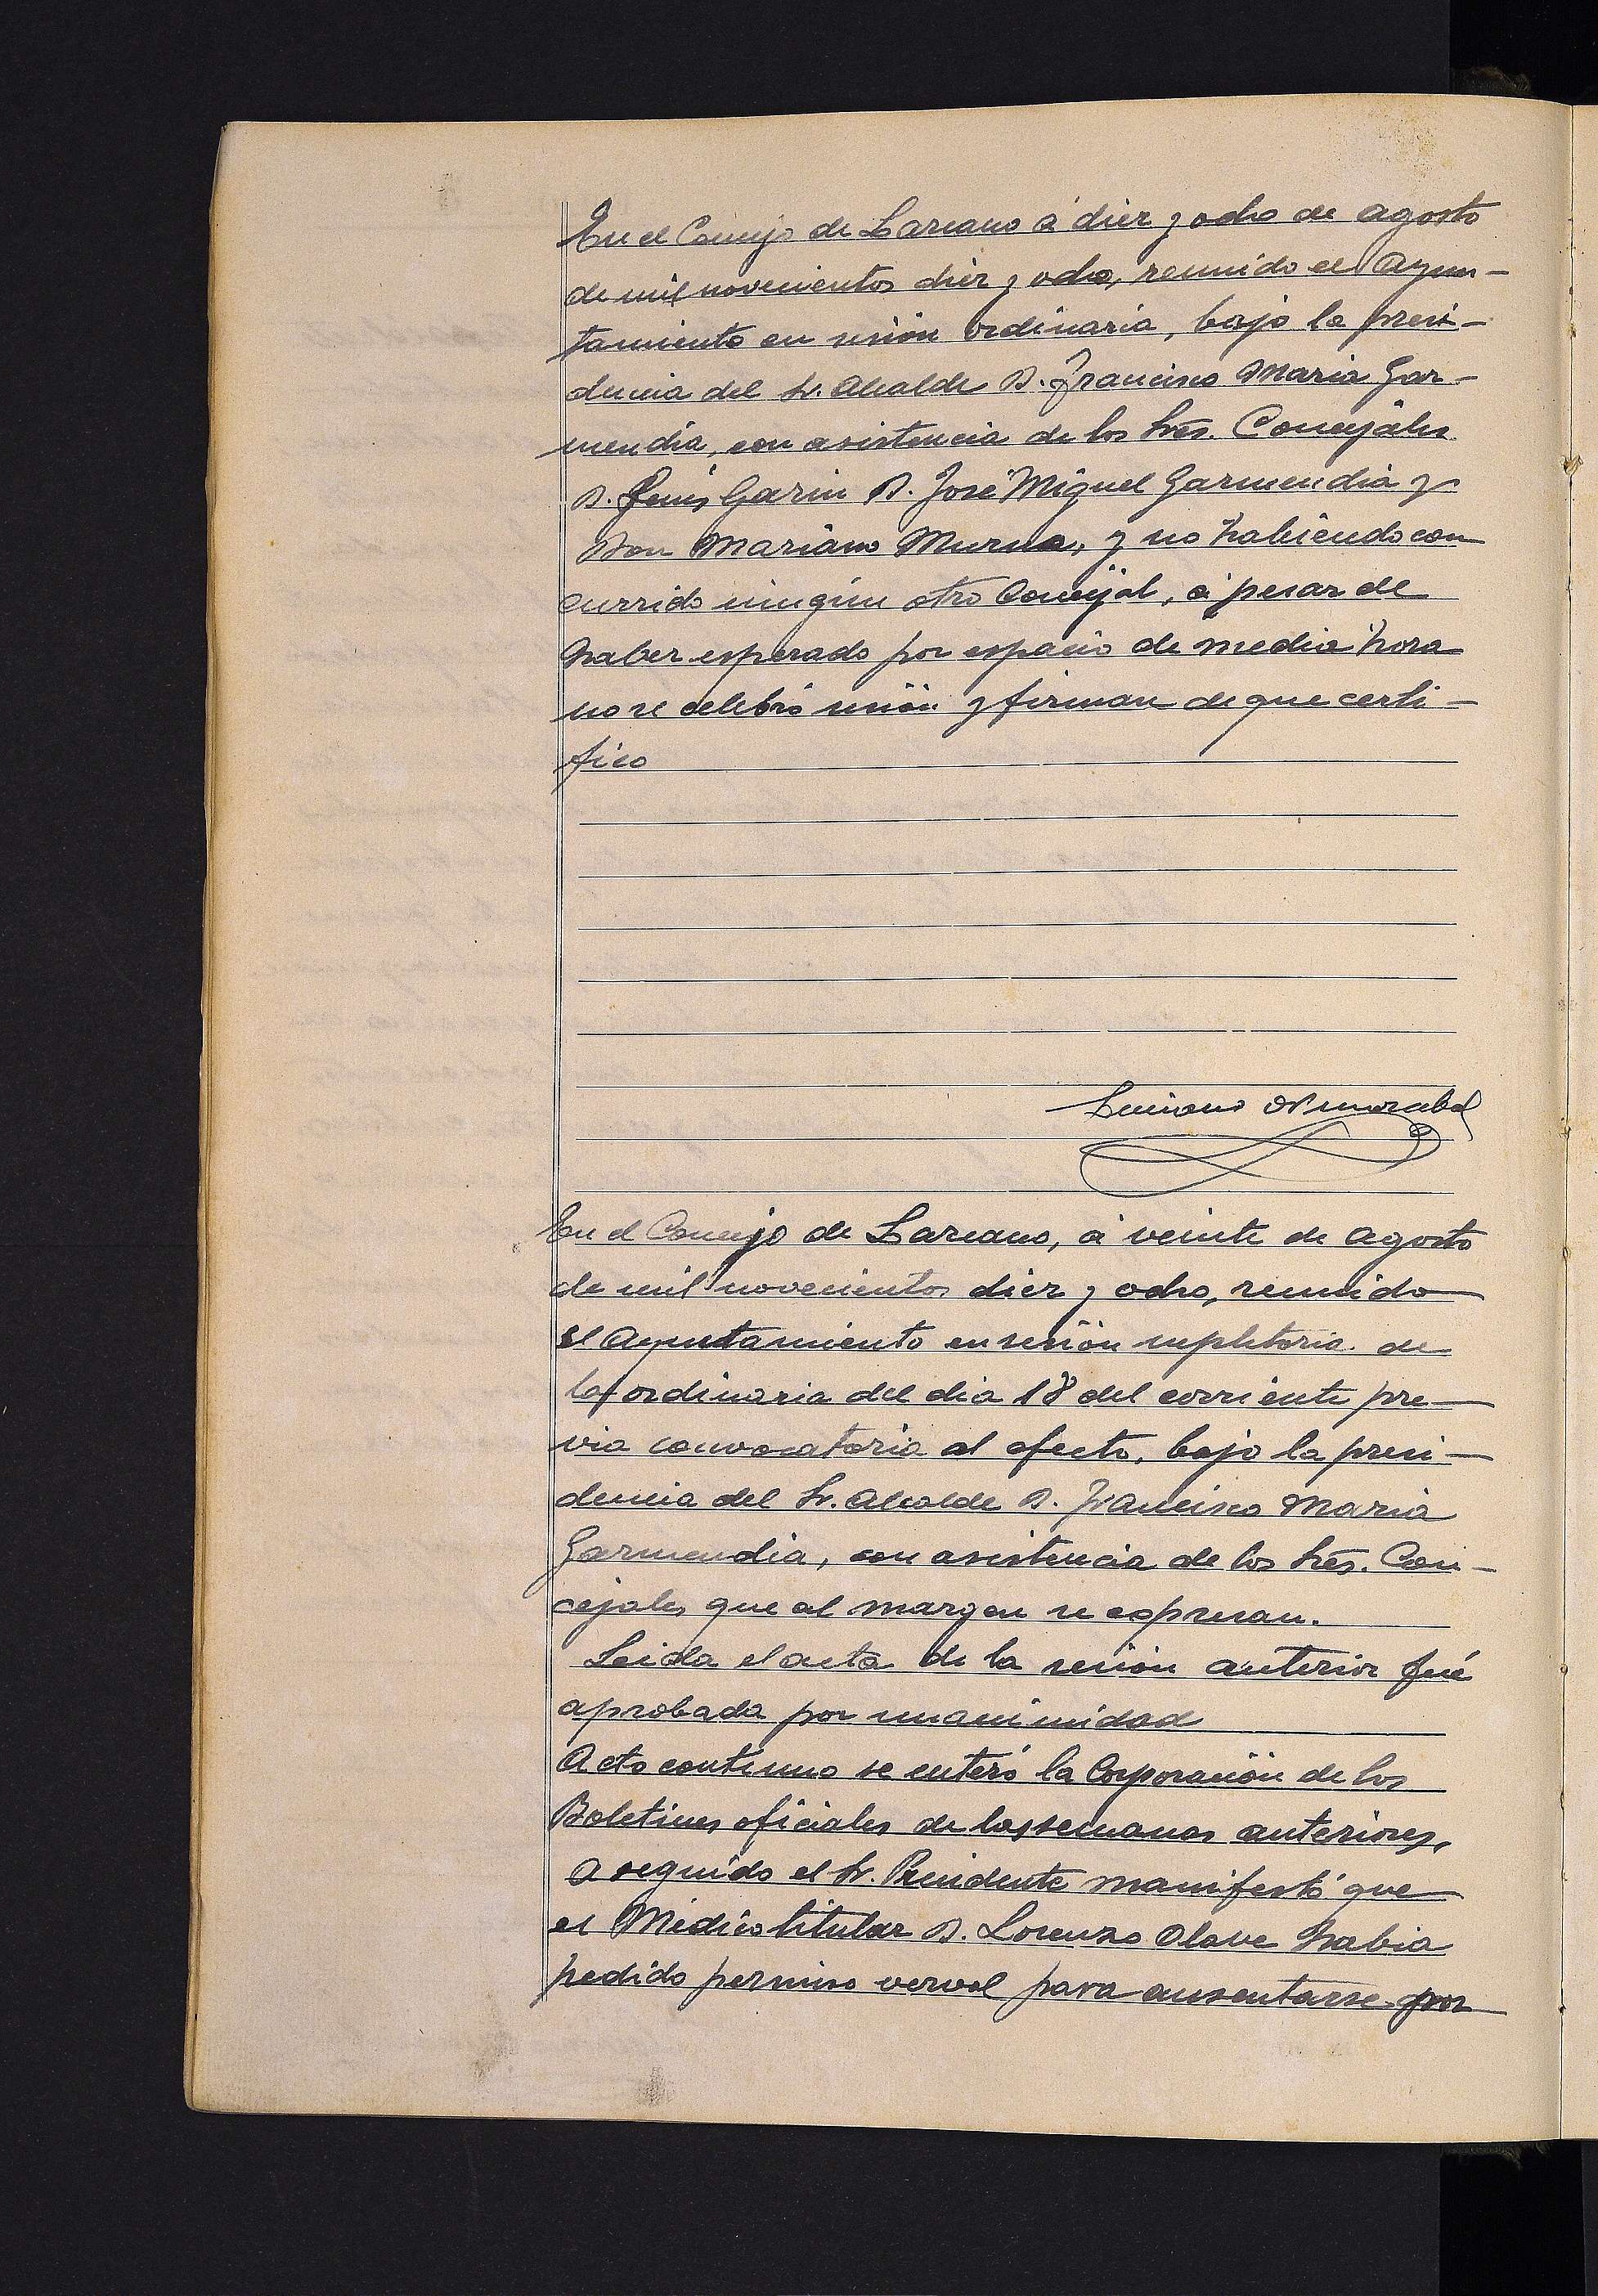 En el Concejo de Lazcano á diez y ocho de agosto
de mil novecientos diez y ocho, reunido el Ayun-
tamiento en sesión ordinaria, bajo la presi-
dencia del Sr. Alcalde D. Francisco Maria Gar-
mendia, con asistencia de los Sres. Concejales
D. Garin D. José Miguel Garmendia y
Don Mariano Murua, y no habiendo con
currido ningún otro Concejal, á pesar de
haber esperado por espacio de media hora
no se celebró sesión y firman de que certi-
fico
Luciano
En el Concejo de Lazcano, á veinte de agosto
de mil novecientos diez y ocho, reunido
el Ayuntamiento en sesión supletoria de
la ordinaria del dia 18 del corriente pre-
via convocatoria al efecto, bajo la presi-
dencia del Sr. Alcalde D. Francisco Maria
Garmendia, con asistencia de los Sres. Con-
cejales que al margen se expresan.
Leida el acta de la sesión anterior fué
aprobada por unanimidad
Acto continuo se enteró la Corporación de los
Boletines oficiales de las semanas anteriores,
A seguido el Sr. Presidente manifestó que
el Médico titular D. Lorenzo Olave habia
pedido permiso verval para ausentarse por